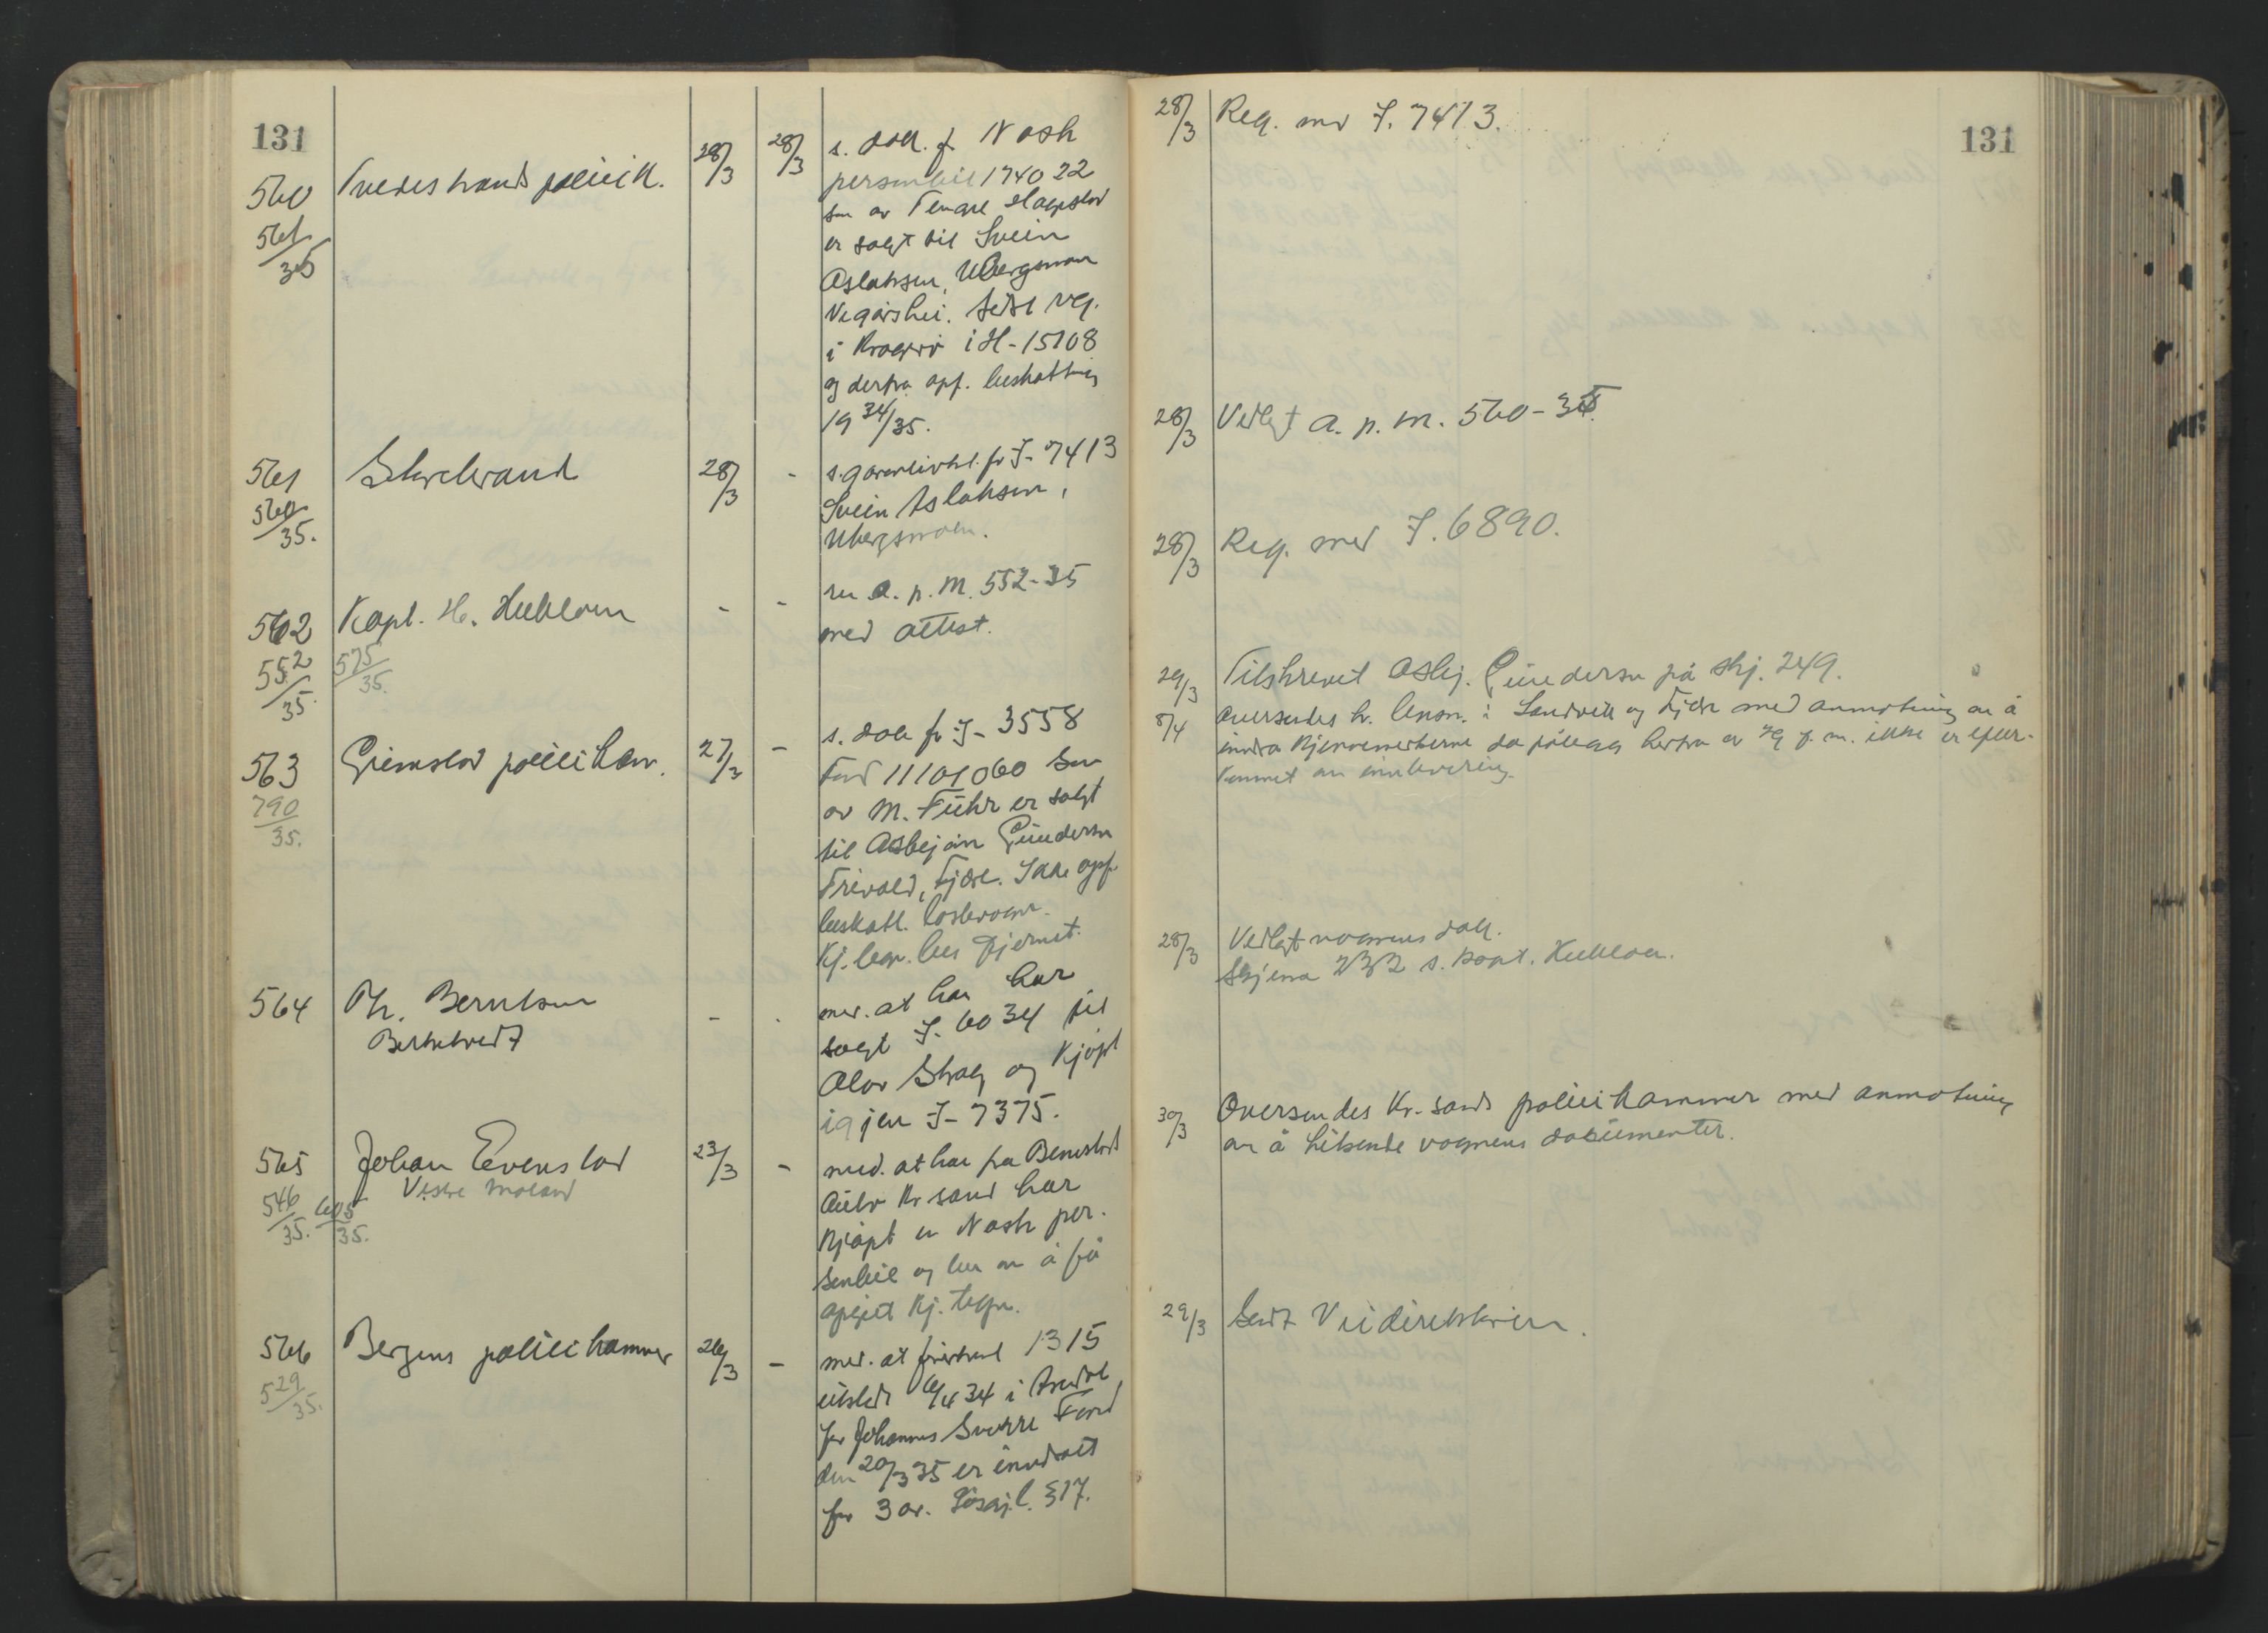 131
560
561/35
Tvedestrands politik.
28/3
28/3
s. dok. f. Nash
personbil 174022
som av Tengel
er solgt til Svein
Aslaksen, Ubergsmoen
Vegårshei. Sidst reg.
i Kragerø i H-15108
og derfra opf. beskatning
19 34/35.
561
560/35.
Storebrand
28/3
-
s. garantitil. for I-7413
Svein Aslaksen,
Ubergsmoen.
562
552/35.
575/35.
Kapt. H.
-
-
ru a. p. m. 552-35
med attest.
563
790/35.
Grimstad politikam.
27/3
-
s. dok for I-3558
Ford 11101060 som
av M. Führ er solgt
til Asbjørn Gundersen
Trivold, Fjære. Ikke opf.
beskatt. lastevogn.
Kj. tegn. bes fjernet.
564
Th. Berntsen
-
-
med. at han har
solgt I-6034 til
Olav Skag og kjøpt
igjen I-7375.
565
546/35. 605/35.
Johan Evenstad
Vestre Moland
23/3
-
med. at han fra
Auto Kr sand har
kjøpt en Nash per-
sonbil og ber om å få
opgitt kj. tegn.
566
529/35.
Bergens politikammer
26/3
-
med. at førerkort 1315
utstedt 6/4 34 i Arendal
for Johannes Sverre Ford
den 20/3 35 er inndradt
for 3 år. Løsgj.l. §17.
131
28/3
Reg. med I. 7413.
28/3
Vedlagt a. p. m. 560-35.
28/3
Reg. med I. 6890.
29/3
Tilskrevet Asbj. Gundersen på skj. 249.
8/4
Oversendes hr. lensm. i Landvik og Fjære med anmodning om å
inndra kjennemerkerne da pålegg herfra av 29 f. m. ikke er efter-
kommet om innlevering.
28/3
Vedlagt vognens dok.
Skjema 232 s. kapt.
30/3
Oversendes Kr.-sands politikammer med anmodning
om å tilsende vognens dokumenter.
29/3
Sendt Veidirektøren.